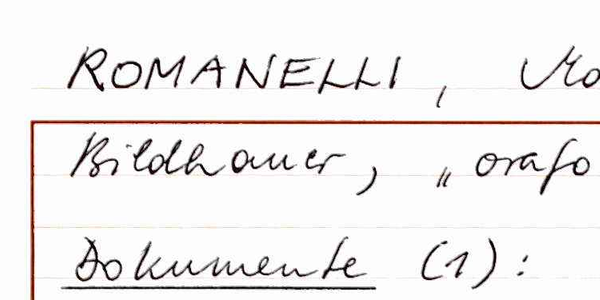 ROMANELLI,
Bildhauer, „orafo
Dokumente (1):